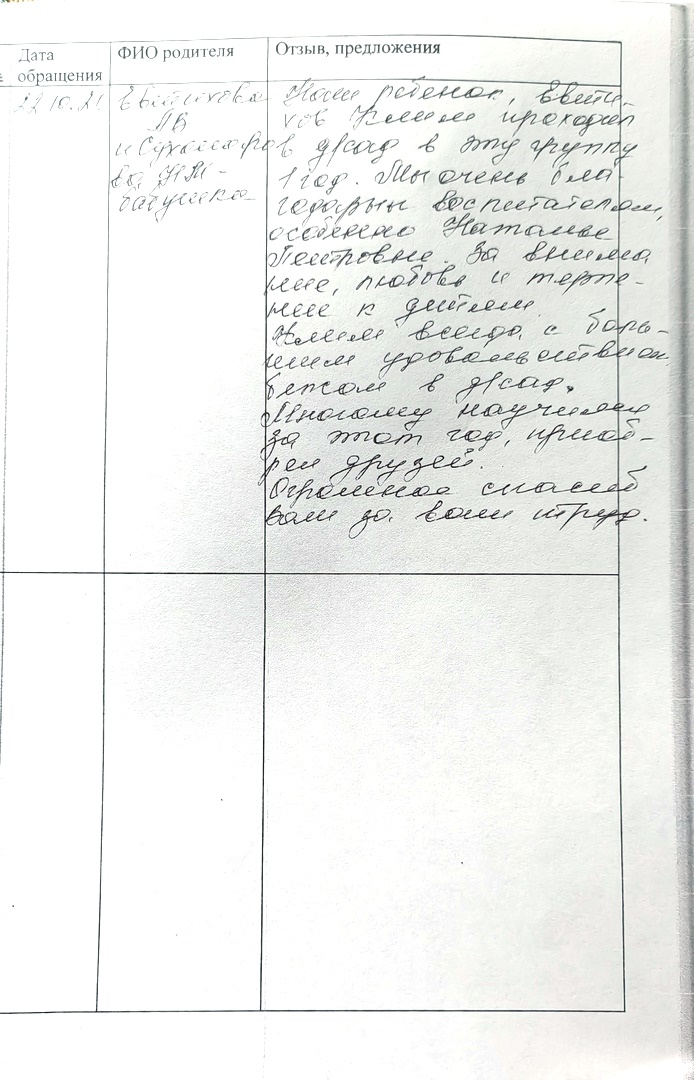 Дата
обращения
ФИО родителя
Отзыв, предложения
22.10.21
Евтихова
и
бабушка
Наш ребенок, Евти-
хов Клим проходил
в д/сад в эту группу
1 год. Мы очень бла-
годарны воспитателям,
особенно Наталье
Петровне. За внима
ние, любовь и терпе-
ние к детям.
Клим всегда с боль-
шим удовольствием
бежал в д/сад.
Многому научился
за этот год, приоб-
рел друзей.
Огромное спасиб
вам за ваш труд.